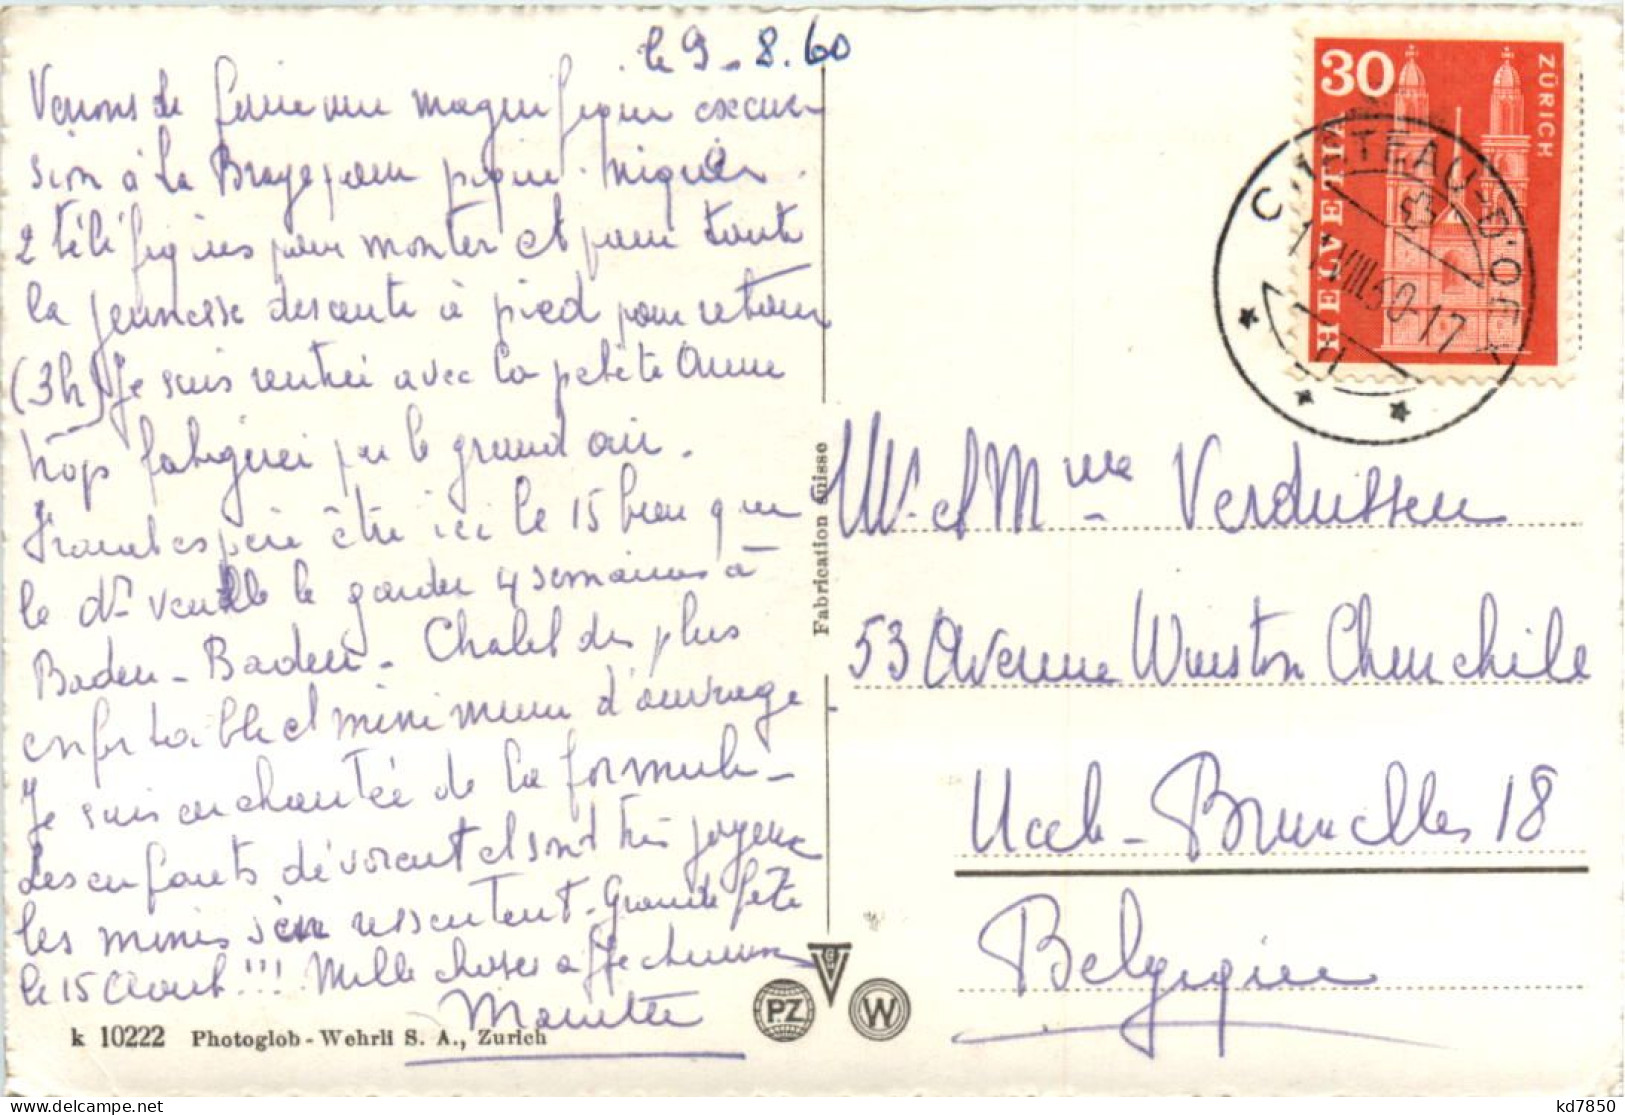 le 9-8.60
Venons de faire une magnifique excur
sion à La Braye pour pique-niquer.
2 téléfériques pour monter et pour toute
la jeunesse descente à pied pour retour
(3h) Je suis rentrée avec la petite Anne
trop fatiguée par le grand air.
espère être ici le 15 bien que
le dr veuille le garder 4 semaines à
Baden-Baden. Chalet des plus
confortable et minimum d'ouvrage
Je suis enchantée de la formule-
Les enfants dévorent et sont très joyeux
les mines s'en ressentent. Grande fête
le 15 Aout!!! Mille choses affectueuses
k 10222 Photoglob-Wehrli S. A., Zurich
Fabrication Suisse
PZ
W
30
HELVETIA
ZÜRICH
CHATEAU-D'OEX
11.VIII.60-17
M. et Mme Verdussen
53 Avenue Winston Churchile
Uccle-Bruxelles 18
Belgique
kd7850